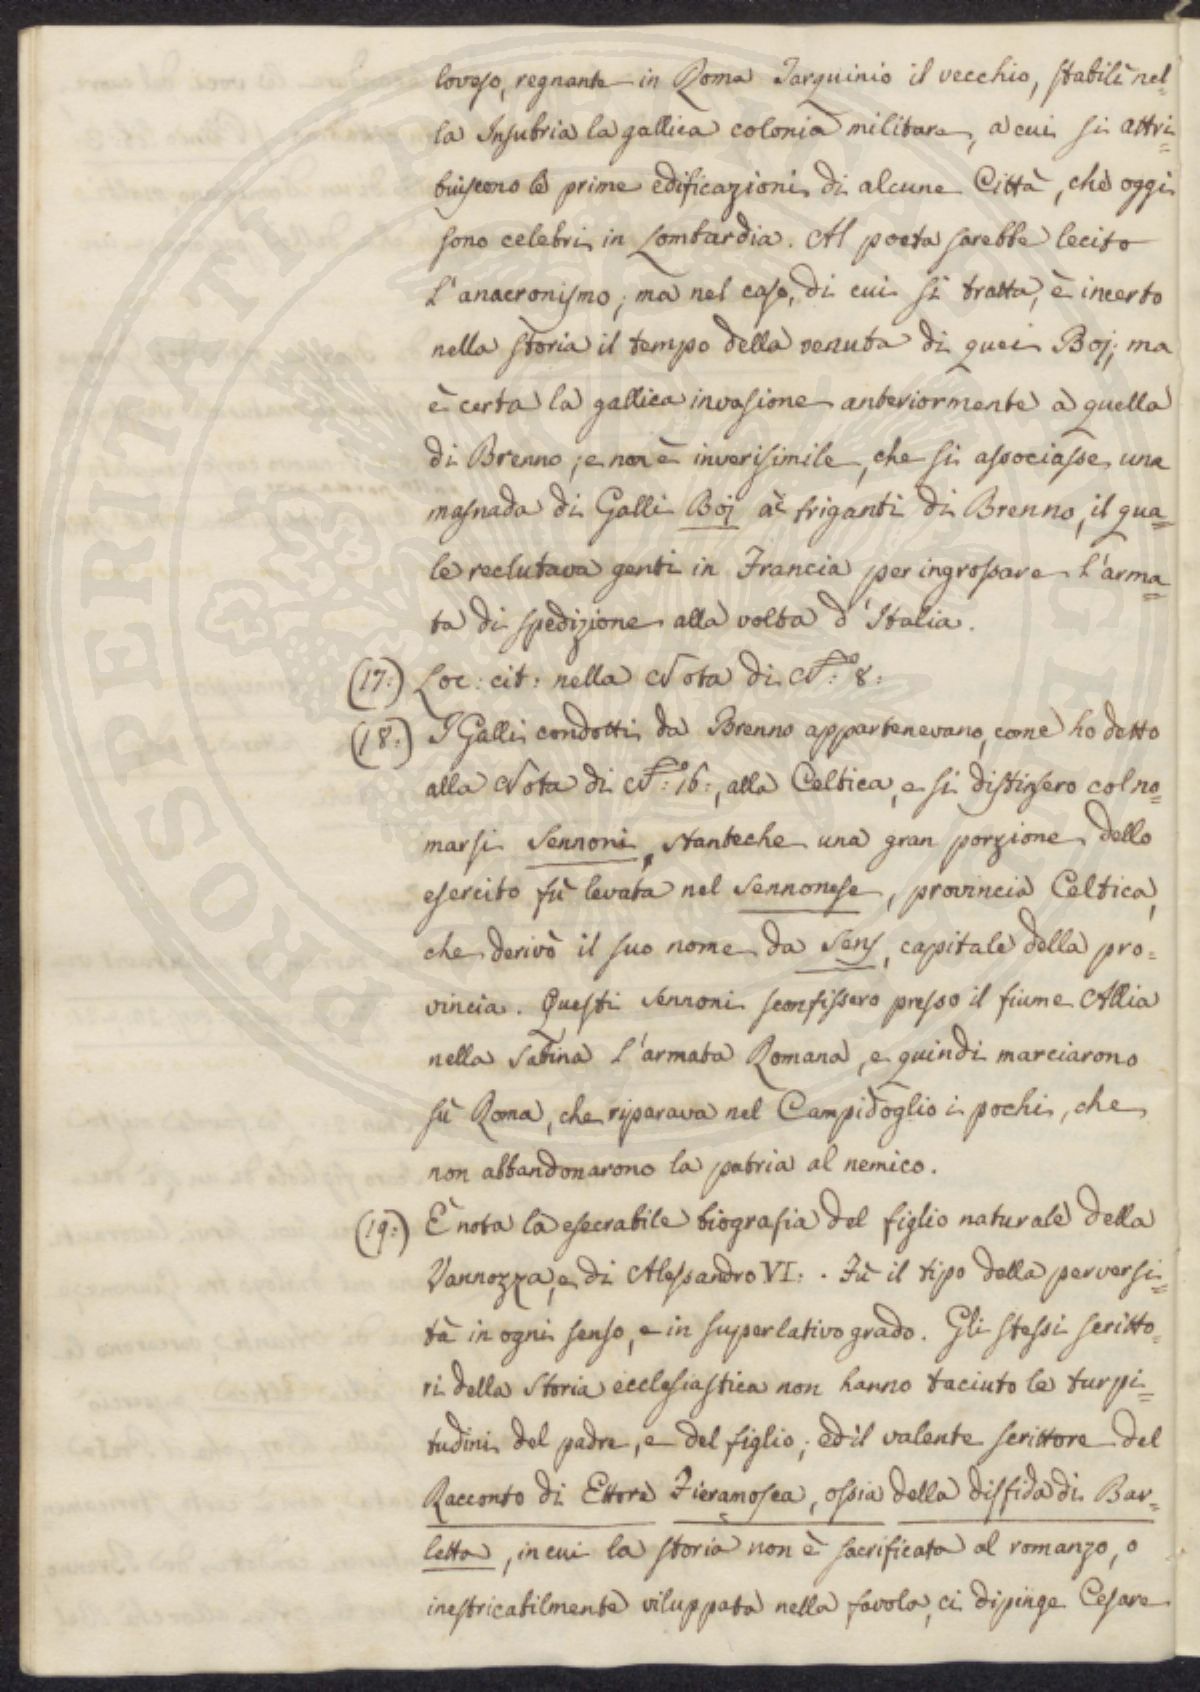 loveso, regnante in Roma Tarquinio il vecchio, stabilì nel=
la Insubria la gallica colonia militare, a cui si attri=
buiscono le prime edificazioni di alcune Città, che oggi
sono celebri in Lombardia. Al poeta sarebbe lecito
l'anacronismo; ma nel caso, di cui si tratta, è incerto
nella storia il tempo della venuta di quei Boj; ma
è certa la gallica invasione anteriormente a quella
di Brenno; e non è inverisimile, che si associasse una
masnada di Galli Boj ai briganti di Brenno, il qua=
le reclutava genti in Francia per ingrossare l'arma=
ta di spedizione alla volta d'Italia.
(17:) Loc: cit: nella Nota di N.º: 8:
(18:) I Galli condotti da Brenno appartenevano, come ho detto
alla Nota di N.º: 16:, alla Celtica, e si distinsero col no=
marsi Sennoni, stanteche una gran porzione dello
esercito fù levata nel Sennonese, provincia Celtica,
che derivò il suo nome da Sens, capitale della pro=
vincia. Questi Sennoni sconfissero presso il fiume Allia
nella Sabina l'armata Romana, e quindi marciarono
sù Roma, che riparava nel Campidoglio i pochi, che
non abbandonarono la patria al nemico.
(19:) È nota la esecrabile biografia del figlio naturale della
Vannozza, e di Alessandro VI:. Fù il tipo della perversi=
tà in ogni senso, e in superlativo grado. Gli stessi scritto=
ri della Storia ecclesiastica non hanno taciuto le turpi=
tudini del padre, e del figlio; ed il valente scrittore del
Racconto di Ettore Fieramosca, ossia della disfida di Bar=
letta, in cui la storia non è sacrificata al romanzo, o
inestricabilmente viluppata nella favola, ci dipinge Cesare
PROSPERITATI PUBLICAE AUGENDAE